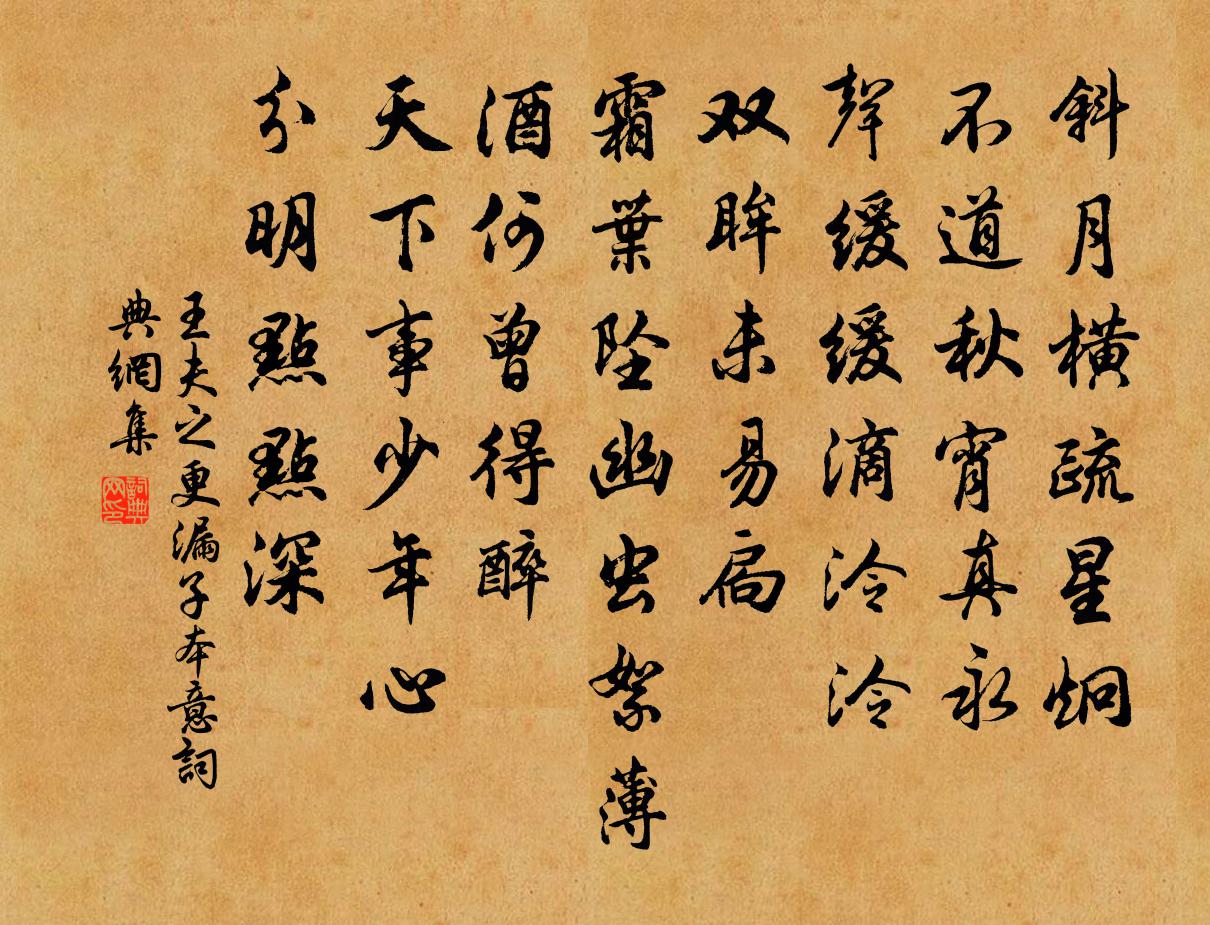 斜月横疏星炯
不道秋宵真永
聲缓缓滴泠泠
双眸未易扃
霜葉坠幽虫絮薄
酒何曾得醉
天下事少年心
分明點點深
王夫之更漏子本意詞
典網集
詞典网印